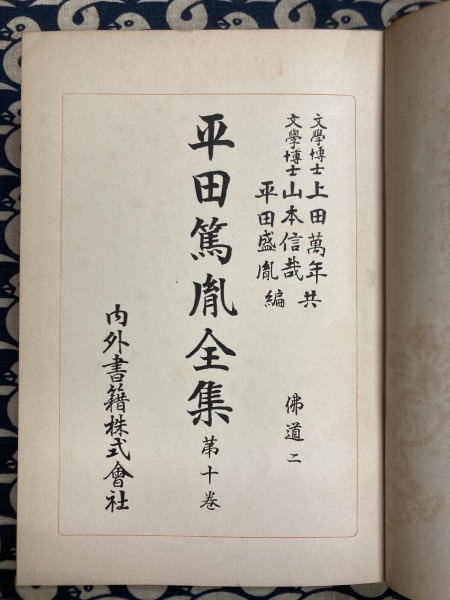 文學博士上田萬年共
文學博士山本信哉
平田盛胤編
佛道二
平田篤胤全集第十卷
內外書籍株式會社